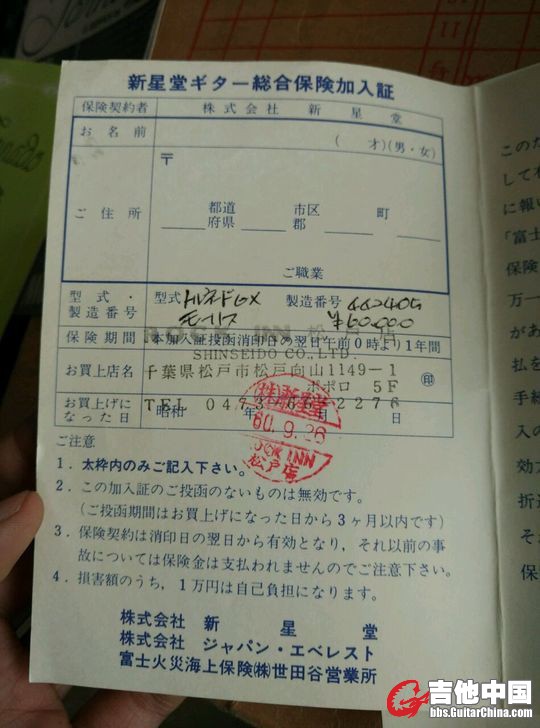 新星堂ギター総合保険加入証
保険契約者 株式会社 新 星 堂
お 名 前 ( 才)(男・女)
〒
ご 住 所 都道府県 市区郡 町
ご職業
型式・製造番号 型式 トルネードGX 製造番号 442405
モーリス ¥60.000
ROCK INN 松戸店
保 険 期 間 本加入証投函消印日の翌日午前0時より1年間
SHINSEIDO CO.LTD.
お買上店名 千葉県松戸市松戸向山1149-1 印
ポポロ 5F
お買上げになった日 昭和 年 月 日
TEL 0473 2276
㈱新星堂
60.9.26
ROCK INN
松戸店
ご注意
1. 太枠内のみご記入下さい。
2. この加入証のご投函のないものは無効です。
(ご投函期間はお買上げになった日から3ヶ月以内です)
3. 保険契約は消印日の翌日から有効となり,それ以前の事
故については保険金は支払われませんのでご注意下さい。
4. 損害額のうち,1万円は自己負担になります。
株式会社 新 星 堂
株式会社 ジャパン・エベレスト
富士火災海上保険㈱世田谷営業所
このた
して
に報い
「富士
保険
万一
があ
払を
手続
入の
効力
折返
それ
保
吉他中国
bbs.GuitarChina.com